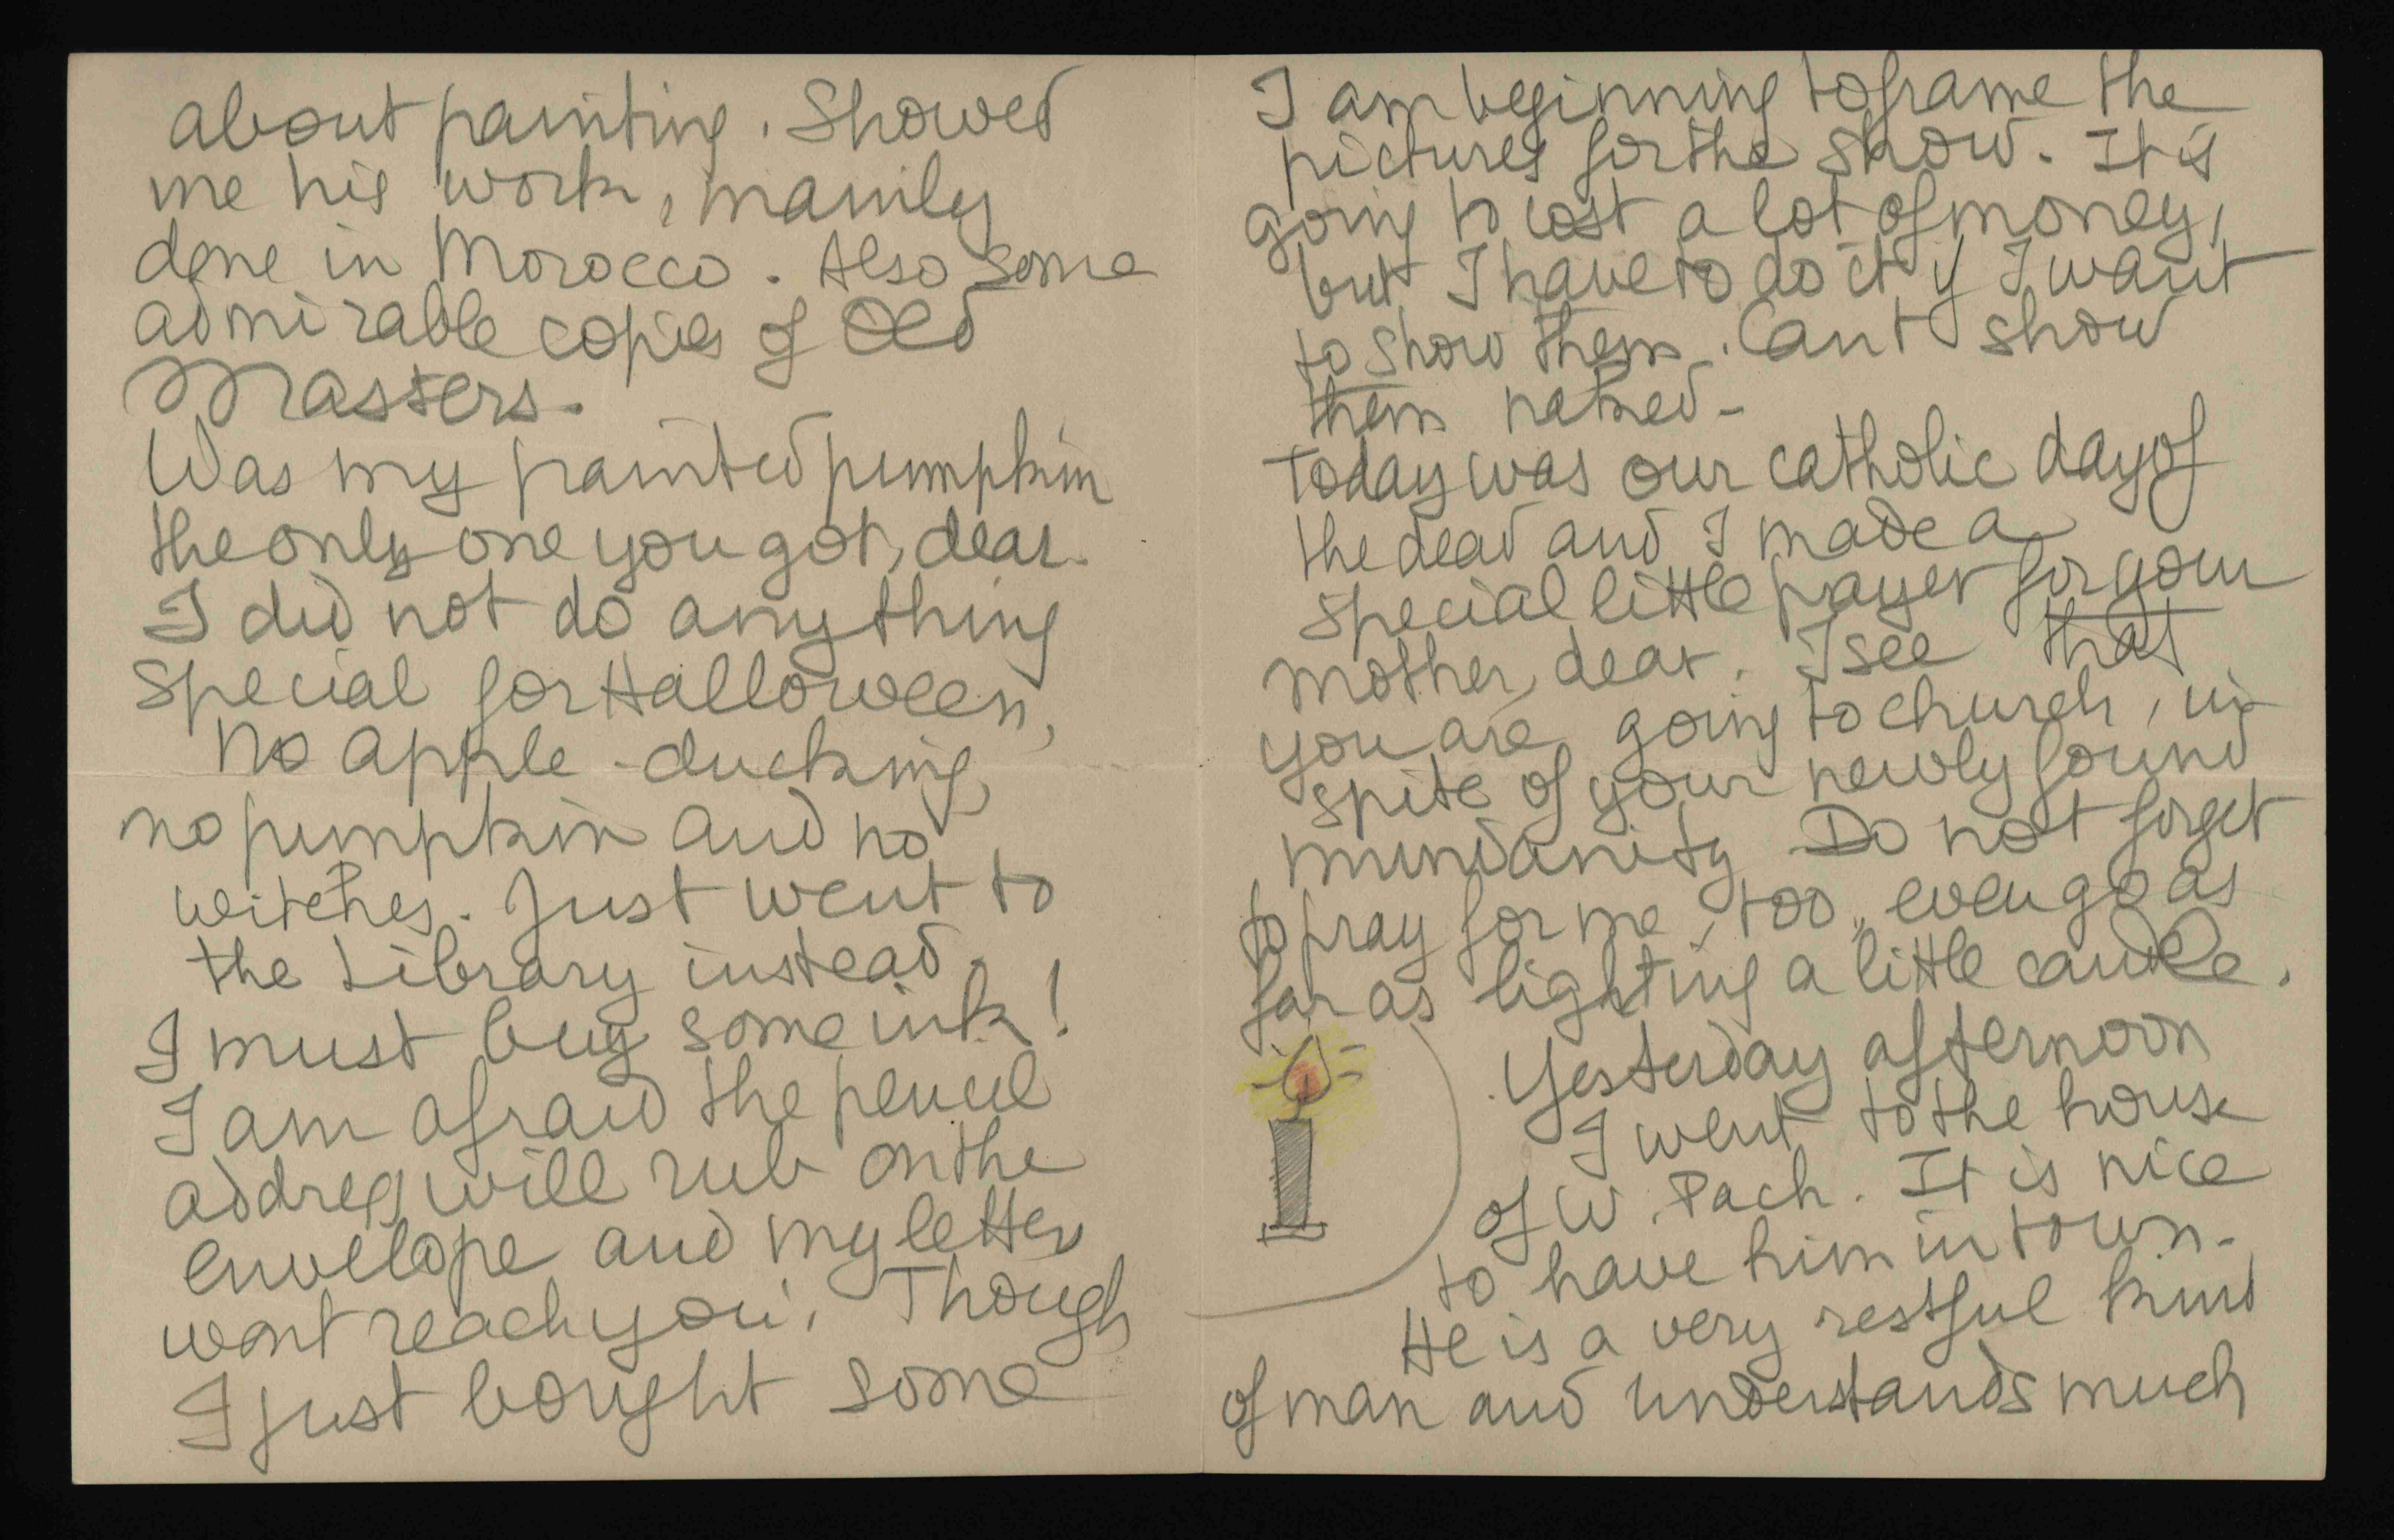 about painting. Showed
me his work, mainly
done in Morocco. Also some
admirable copies of Old
Masters.
Was my painted pumpkin
the only one you got, dear.
I did not do anything
special for Halloween,
no apple-ducking,
no pumpkin and no
witches. Just went to
the Library instead.
I must buy some ink!
I am afraid the pencil
address will rub on the
envelope and my letter
wont reach you. Though
I just bought some
I am beginning to frame the
pictures for the show. It is
going to cost a lot of money,
but I have to do it if I want
to show them. Cant show
them naked-
Today was our catholic day of
the dead and I made a
special little prayer for your
mother, dear. I see that
you are going to church, in
spite of your newly found
mundanity. Do not forget
to pray for me, too, even go as
far as lighting a little candle.
Yesterday afternoon
I went to the house
of W. Pach. It is nice
to have him in town.
He is a very restful kind
of man and understands much